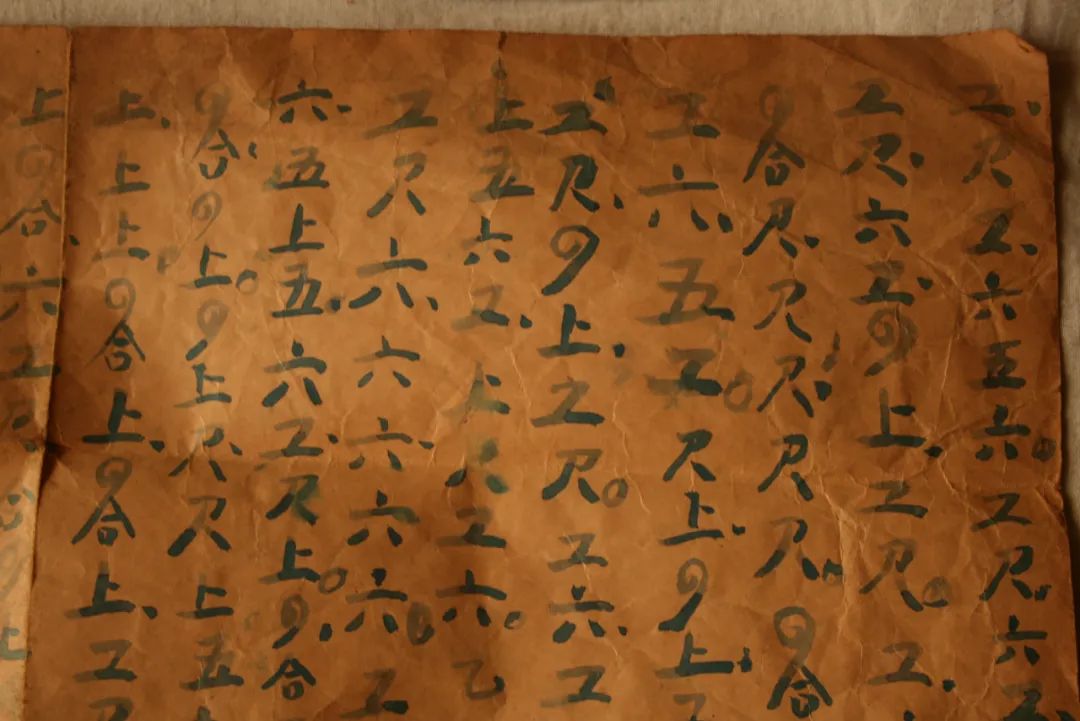 工、尺工、六五六。工尺、六工
工尺、六工、四上、工尺。工、
四合尺、尺尺、尺尺、四合
工六、五工。尺上、四上、工
工、尺、四上、工尺。工六、工
上五六工、上尺工六。乙
工尺六、六六、六六。工
六、五上五、六工、尺上。四、合
四合、四上。四上尺、尺上五
上、上上、四合上、四合上、工尺
上四合、六工